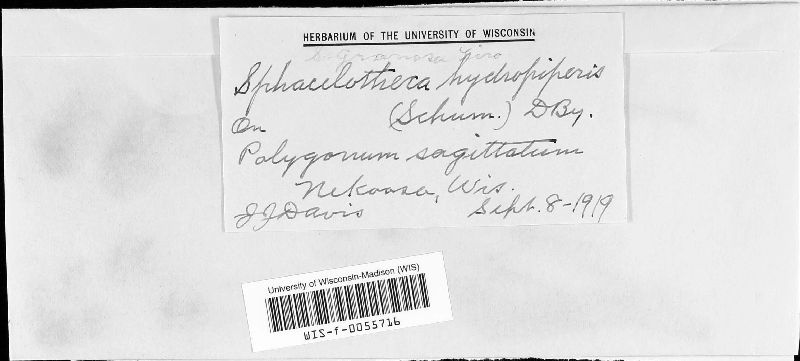 HERBARIUM OF THE UNIVERSITY OF WISCONSIN
Sphacelotheca hydropiperis
(Schum.) DBy.
On
Polygonum sagittatum
Nekoosa, Wis.
JJDavis Sept. 8-1919
University of Wisconsin-Madison (WIS)
WIS-f-0055716